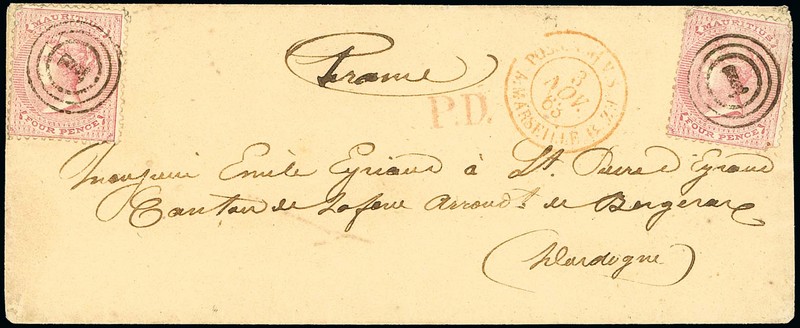 MAURITIUS
FOUR PENCE
France
P.D.
POSS. ANG. V. S.
3
NOV.
65
MARSEILLE
MAURITIUS
FOUR PENCE
Monsieur Emile Eyriaud à St. Pierre d'Eyraud
Canton de Laforce Arrondt. de Bergerac
(Dordogne)